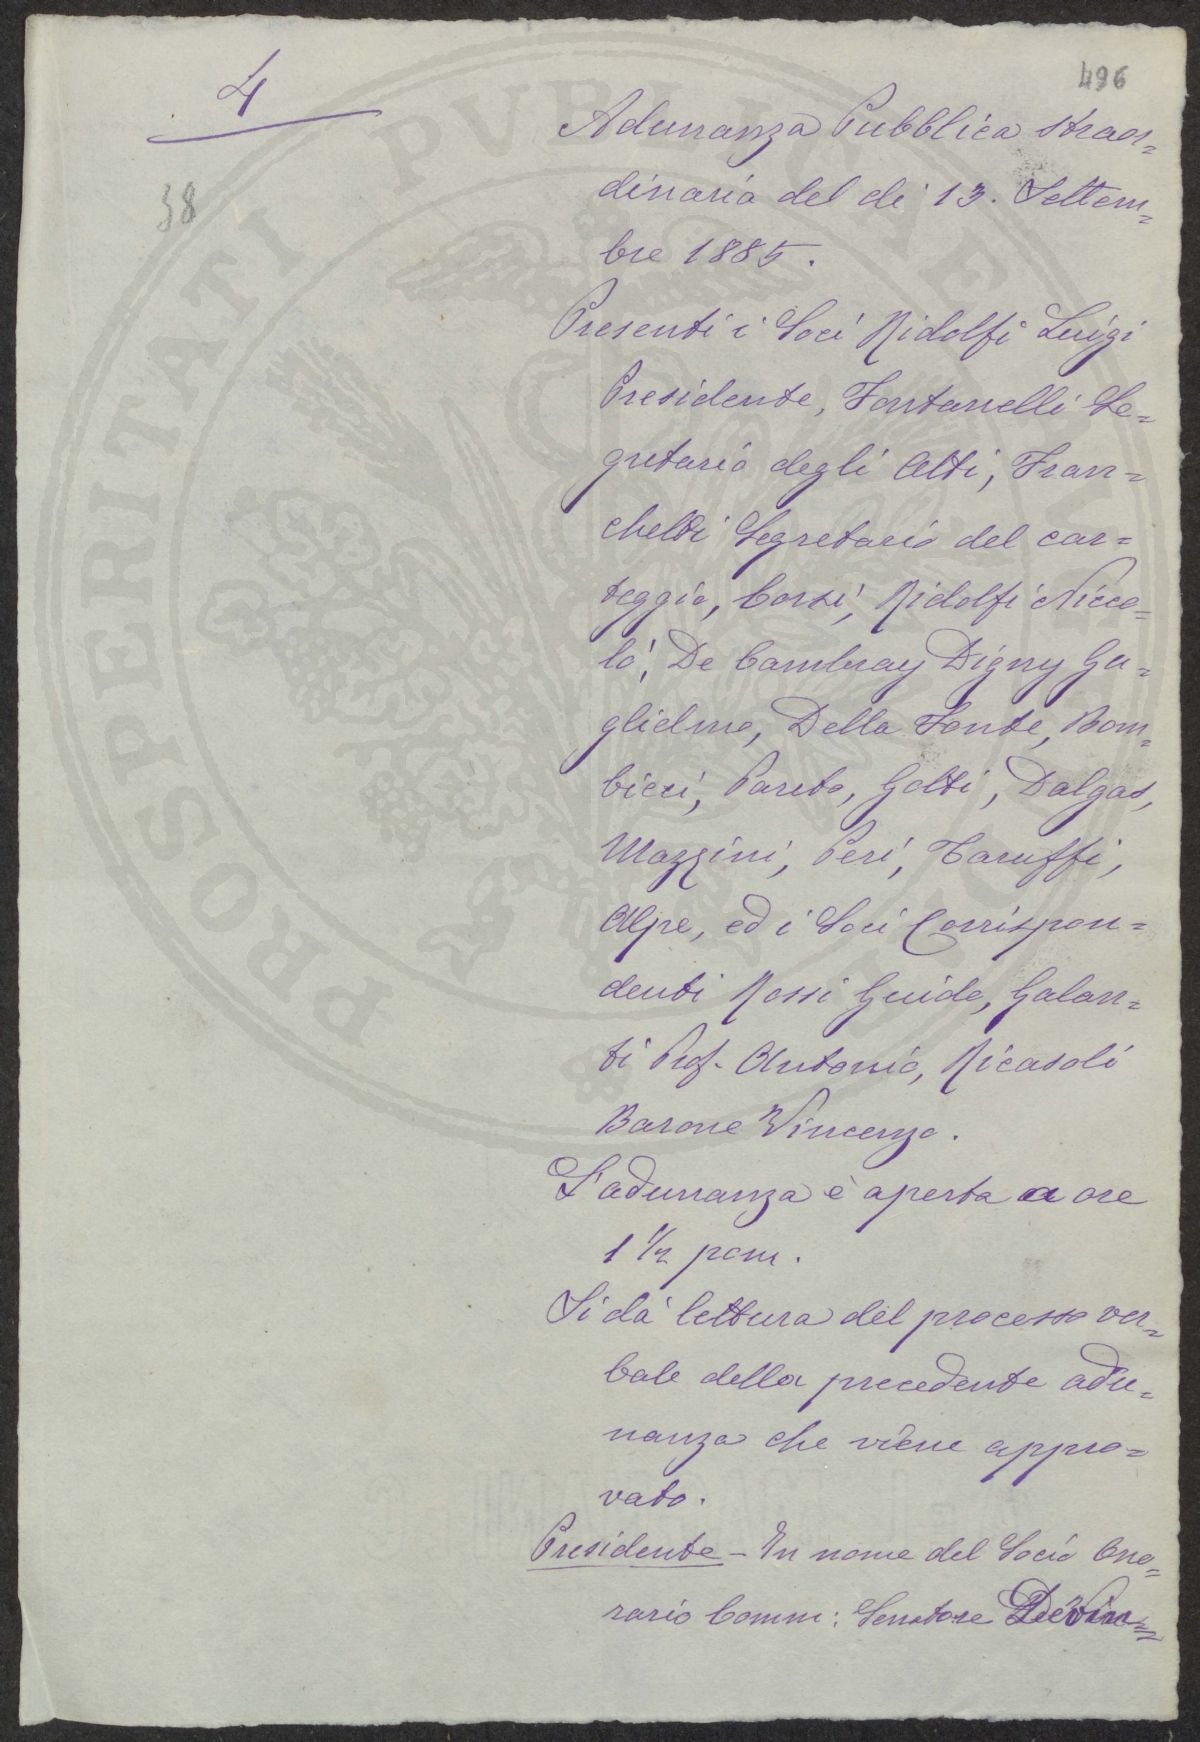 4
496
38
Adunanza Pubblica straor=
dinaria del dì 13. Settem=
bre 1885.
Presenti i Soci Ridolfi Luigi
Presidente, Fontanelli Se=
gretario degli Atti, Fran=
chetti Segretario del car=
teggio, Corsi, Ridolfi Nicco=
lò, De Cambray Digny Gu=
glielmo, Della Fonte, Bom=
bicci, Pareto, Gotti, Dalgas,
Mazzini, Peri, Taruffi,
Alpe, ed i Soci Corrispon=
denti Rossi Guido, Galan=
ti Prof. Antonio, Ricasoli
Barone Vincenzo.
L'adunanza è aperta a ore
1 1/2 pom.
Si dà lettura del processo ver=
bale della precedente adu=
nanza che viene appro=
vato.
Presidente - In nome del Socio Ono=
rario Comm: Senatore De Vin=
PROSPERITATI PVBLICAE